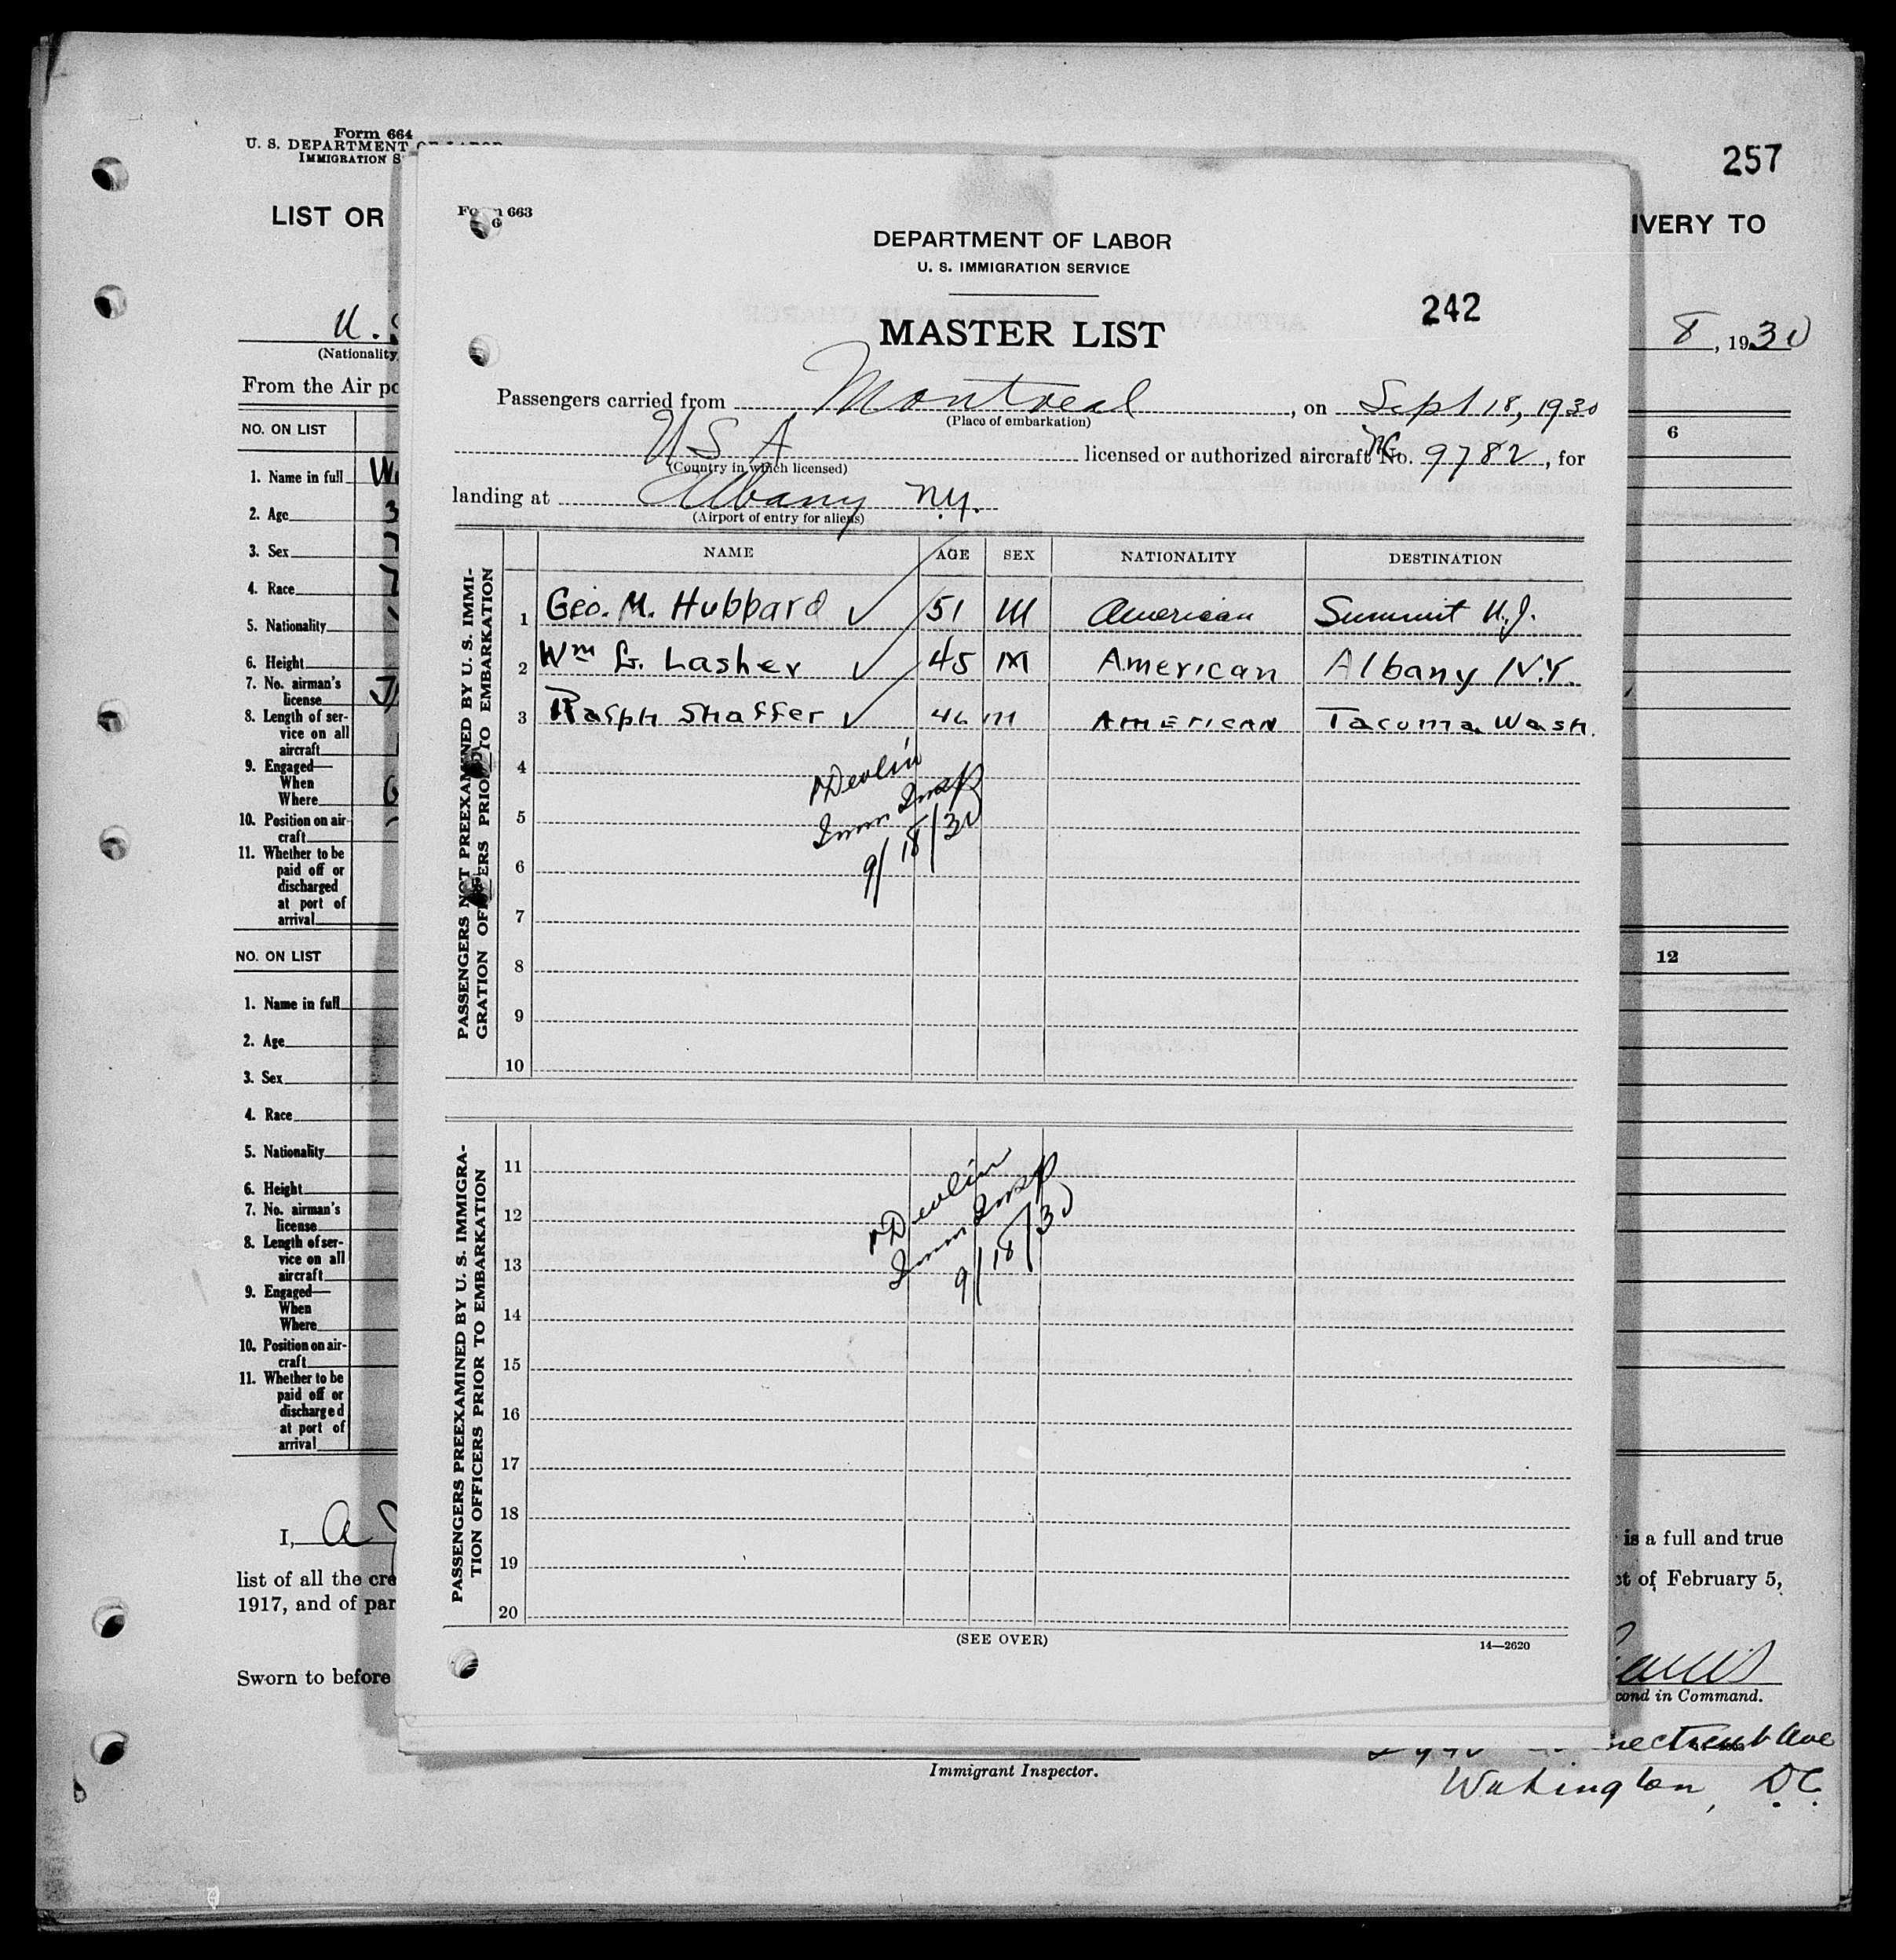 Form 664
U. S. DEPARTMENT OF LABOR
IMMIGRATION S
257
LIST OR
IVERY TO
U. S
(Nationality
8, 1930
From the Air po
NO. ON LIST
6
1. Name in full
2. Age
3. Sex
4. Race
5. Nationality
6. Height
7. No. airman's
license
8. Length of ser-
vice on all
aircraft
9. Engaged—
When
Where
10. Position on air-
craft
11. Whether to be
paid off or
discharged
at port of
arrival
NO. ON LIST
12
1. Name in full
2. Age
3. Sex
4. Race
5. Nationality
6. Height
7. No. airman's
license
8. Length of ser-
vice on all
aircraft
9. Engaged—
When
Where
10. Position on air-
craft
11. Whether to be
paid off or
discharged
at port of
arrival
I, A
is a full and true
list of all the cre
ct of February 5,
1917, and of par
Sworn to before
cond in Command.
Immigrant Inspector.
Ave
Wahington, D.C.
Form 663
G
DEPARTMENT OF LABOR
U. S. IMMIGRATION SERVICE
242
MASTER LIST
Passengers carried from Montreal, on Sept 18, 1930
(Place of embarkation)
U S A licensed or authorized aircraft No. NC 9782, for
(Country in which licensed)
landing at Albany N.Y.
(Airport of entry for aliens)
NAME AGE SEX NATIONALITY DESTINATION
PASSENGERS NOT PREEXAMINED BY U. S. IMMI-
GRATION OFFICERS PRIOR TO EMBARKATION
1 Geo. M. Hubbard ✓ 51 M American Summit N.J.
2 Wm G. Lasher ✓ 45 M American Albany N.Y.
3 Ralph Shaffer ✓ 46 M American Tacoma Wash.
4
5
6
7
8
9
10
Devlin
Imm Insp
9/18/30
PASSENGERS PREEXAMINED BY U. S. IMMIGRA-
TION OFFICERS PRIOR TO EMBARKATION
11
12
13
14
15
16
17
18
19
20
Devlin
Imm Insp
9/18/30
(SEE OVER)
14—2620